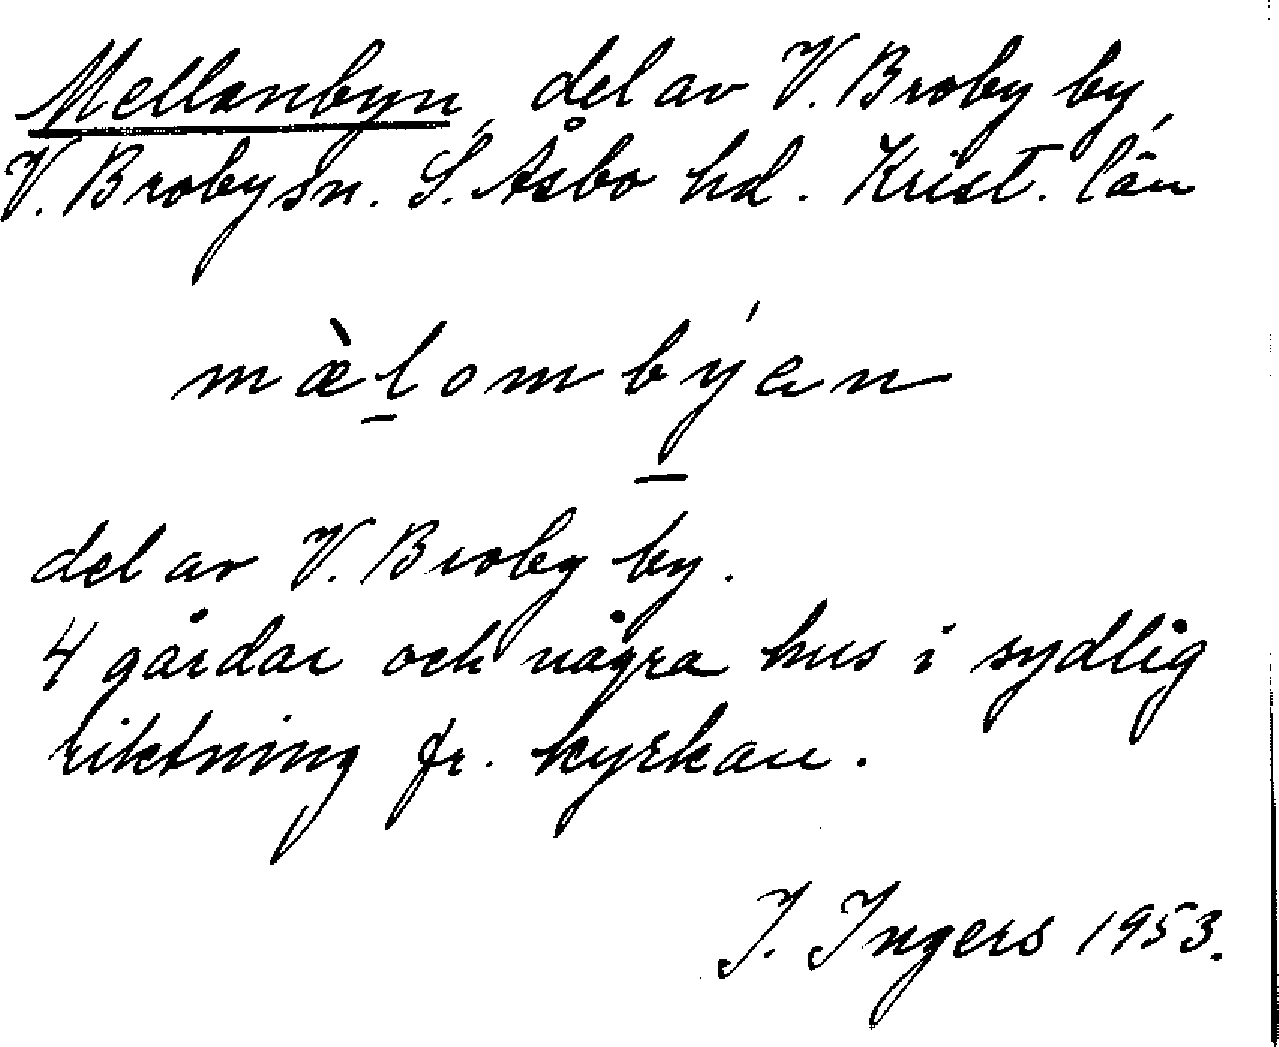 Mellanbyn, del av V. Broby by,
V. Broby sn. S. Åsbo hd. Krist. län
mæ̀l̠ombý̠en
del av V. Broby by.
4 gårdar och några hus i sydlig
riktning fr. kyrkan.
I. Ingers 1953.